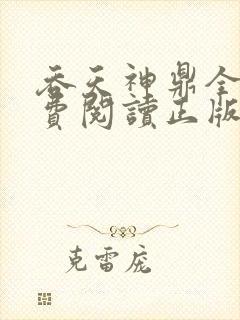 吞天神鼎全
費閱讀正版
克雷庞